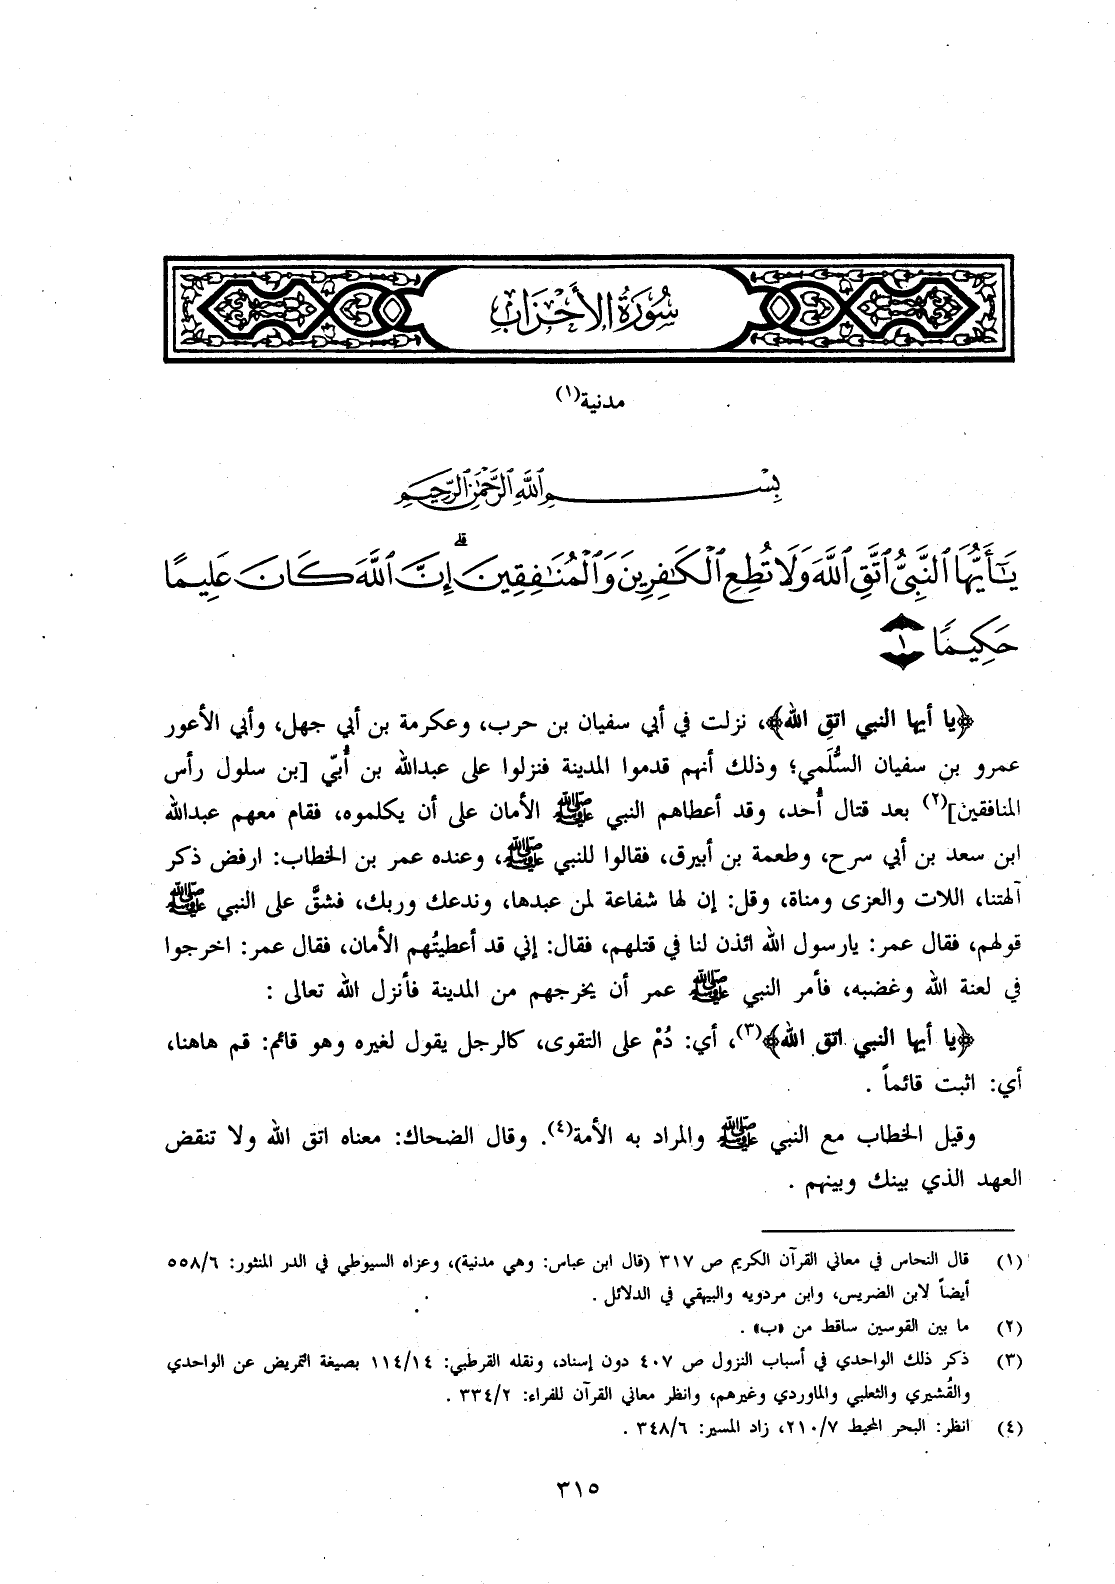 سُورَةُ الأَحْزَابِ
مدنية(١)
بِسْمِ اللَّهِ الرَّحْمَٰنِ الرَّحِيمِ
يَٰٓأَيُّهَا ٱلنَّبِىُّ ٱتَّقِ ٱللَّهَ وَلَا تُطِعِ ٱلْكَٰفِرِينَ وَٱلْمُنَٰفِقِينَ ۗ إِنَّ ٱللَّهَ كَانَ عَلِيمًا
حَكِيمًا ١
﴿يا أيها النبي اتقِ الله﴾، نزلت في أبي سفيان بن حرب، وعكرمة بن أبي جهل، وأبي الأعور
عمرو بن سفيان السُّلَمي؛ وذلك أنهم قدموا المدينة فنزلوا على عبدالله بن أُبيّ [بن سلول رأس
المنافقين](٢) بعد قتال أُحد، وقد أعطاهم النبي ﷺ الأمان على أن يكلموه، فقام معهم عبدالله
ابن سعد بن أبي سرح، وطعمة بن أبيرق، فقالوا للنبي ﷺ، وعنده عمر بن الخطاب: ارفض ذكر
آلهتنا، اللات والعزى ومناة، وقل: إن لها شفاعة لمن عبدها، وندعك وربك، فشقَّ على النبي ﷺ
قولهم، فقال عمر: يارسول الله ائذن لنا في قتلهم، فقال: إني قد أعطيتُهم الأمان، فقال عمر: اخرجوا
في لعنة الله وغضبه، فأمر النبي ﷺ عمر أن يخرجهم من المدينة فأنزل الله تعالى :
﴿يا أيها النبي اتق الله﴾(٣)، أي: دُمْ على التقوى، كالرجل يقول لغيره وهو قائم: قم هاهنا،
أي: اثبت قائماً .
وقيل الخطاب مع النبي ﷺ والمراد به الأمة(٤). وقال الضحاك: معناه اتق الله ولا تنقض
العهد الذي بينك وبينهم .
(١) قال النحاس في معاني القرآن الكريم ص ٣١٧ (قال ابن عباس: وهي مدنية)، وعزاه السيوطي في الدر المنثور: ٥٥٨/٦
أيضاً لابن الضريس، وابن مردويه والبيهقي في الدلائل .
(٢) ما بين القوسين ساقط من «ب» .
(٣) ذكر ذلك الواحدي في أسباب النزول ص ٤٠٧ دون إسناد، ونقله القرطبي: ١١٤/١٤ بصيغة التمريض عن الواحدي
والقُشيري والثعلبي والماوردي وغيرهم، وانظر معاني القرآن للفراء: ٣٣٤/٢ .
(٤) انظر: البحر المحيط ٢١٠/٧، زاد المسير: ٣٤٨/٦ .
٣١٥